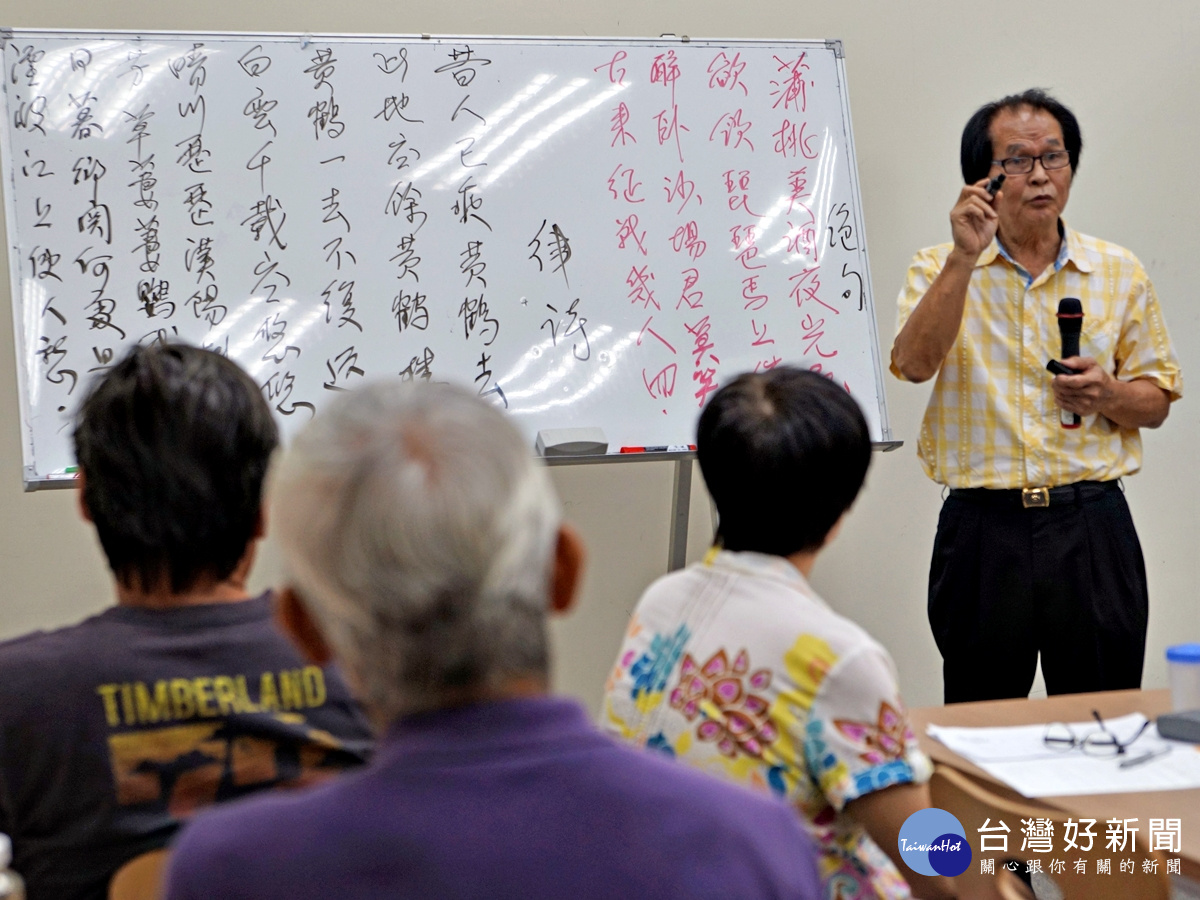 絕句
蒲桃美酒夜光
欲飲琵琶馬上
醉臥沙場君莫笑
古來征戰幾人回
律詩
昔人已乘黃鶴去
此地空餘黃鶴樓
黃鶴一去不復返
白雲千載空悠悠
晴川歷歷漢陽
芳草萋萋鸚
日暮鄉關何處是
煙波江上使人愁
TIMBERLAND
TaiwanHot
台灣好新聞
關心跟你有關的新聞